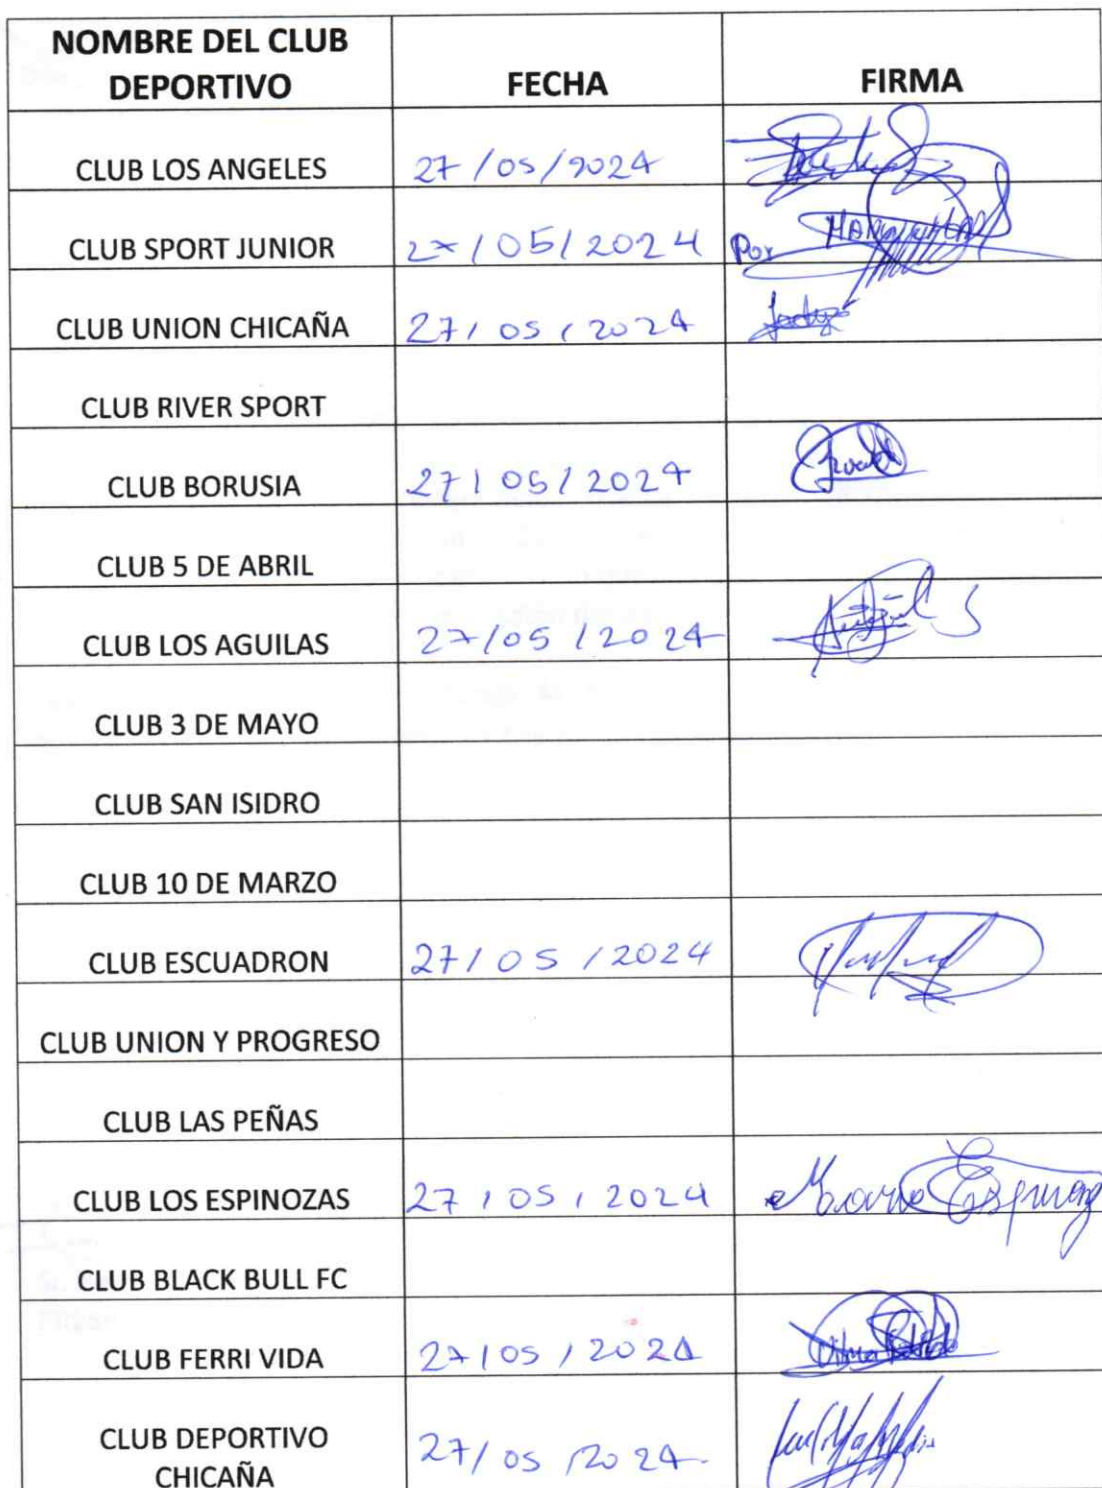 NOMBRE DEL CLUB
DEPORTIVO FECHA FIRMA
CLUB LOS ANGELES 27/05/2024
CLUB SPORT JUNIOR 27/05/2024 Por
CLUB UNION CHICAÑA 27/05/2024
CLUB RIVER SPORT
CLUB BORUSIA 27/05/2024
CLUB 5 DE ABRIL
CLUB LOS AGUILAS 27/05/2024
CLUB 3 DE MAYO
CLUB SAN ISIDRO
CLUB 10 DE MARZO
CLUB ESCUADRON 27/05/2024
CLUB UNION Y PROGRESO
CLUB LAS PEÑAS
CLUB LOS ESPINOZAS 27/05/2024
CLUB BLACK BULL FC
CLUB FERRI VIDA 27/05/2024
CLUB DEPORTIVO
CHICAÑA 27/05/2024